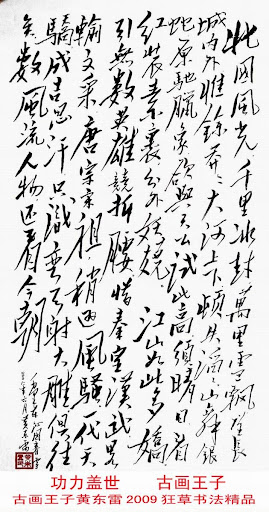 北国風光千里冰封萬里雪飘望长
城内外惟馀莽莽大河上下顿失滔滔山舞银
蛇原驰臘象欲与天公试比高须晴日看
红装素裹分外妖娆江山如此多娇
引無数英雄競折腰惜秦皇漢武略
输文采唐宗宋祖稍逊風骚一代天
骄成吉思汗只识弯弓射大雕俱往
矣数風流人物还看今朝
功力盖世 古画王子
古画王子黄东雷2009狂草书法精品